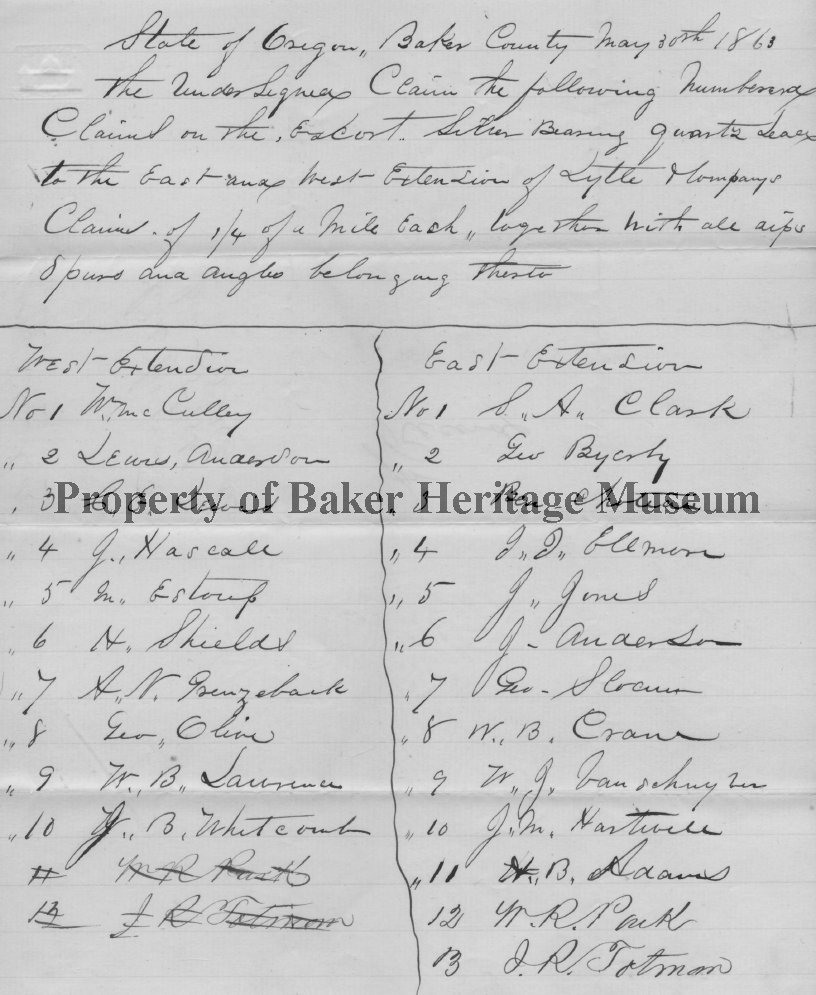 State of Oregon,, Baker County May 30th 1863
the Undersigned Claim the following Numbered
Claims on the, Escort. Silver Bearing quartz Lead
to the East and West Extension of Lytle & Companys
Claim. of 1/4 of a Mile Each,, together With all dips
Spurs and angles belonging thereto
West Extension
No 1 W,, McCulley
,, 2 Lewis, Anderson
, 3 Lewis
,, 4 J,, Hascall
,, 5 M,, Estoup
,, 6 H,, Shields
,, 7 A,, N,, Grenzeback
,, 8 Geo,, Olive
,, 9 W,, B,, Lawrence
,, 10 J,, B, Whitcomb
11 W R Park
12 J R Totman
East Extension
No 1 S,, A,, Clark
,, 2 Geo Byerly
,, 3 Ben
,, 4 J,, J,, Ellmore
,, 5 J,, Jones
,, 6 J- Anderson
,, 7 Geo- Slocum
,, 8 W,, B, Crane
,, 9 W,, J,, Vanschuyver
,, 10 J,, M,, Hartwell
,, 11 H,, B, Adams
12 W. R. Park
13 J. R. Totman
Property of Baker Heritage Museum